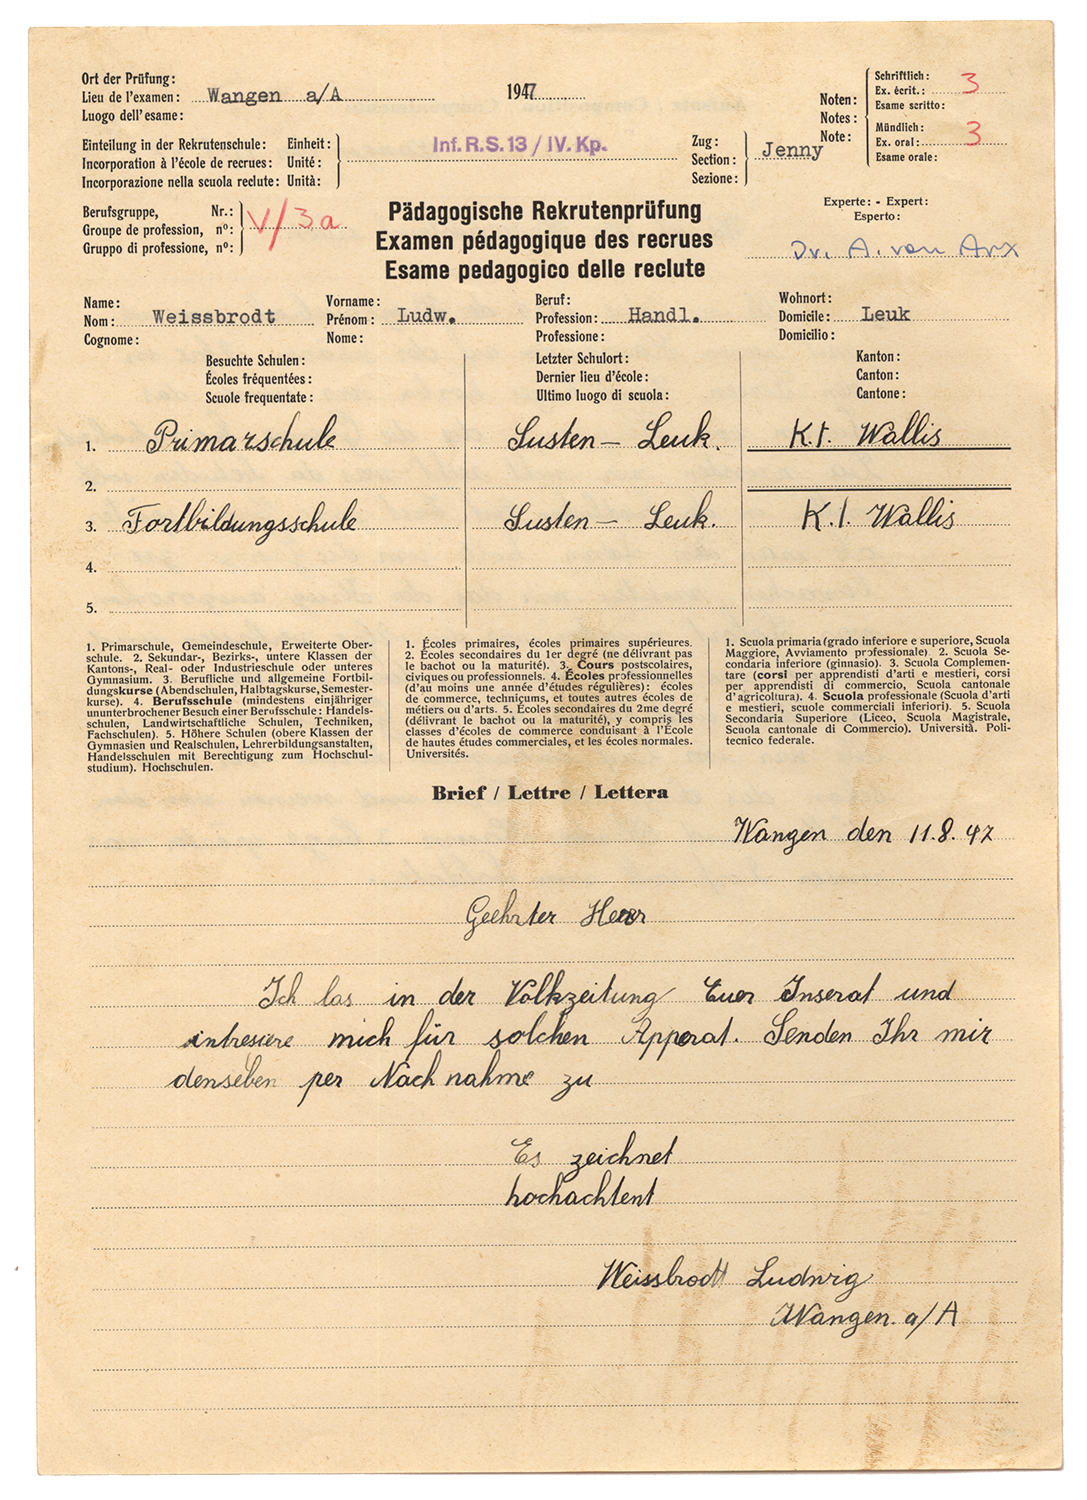 Ort der Prüfung:
Lieu de l'examen: Wangen a/A
Luogo dell'esame:
1947
Noten:
Notes:
Note:
Schriftlich:
Ex. écrit.: 3
Esame scritto:
Mündlich:
Ex. oral: 3
Esame orale:
Einteilung in der Rekrutenschule: Einheit:
Incorporation à l'école de recrues: Unité:
Incorporazione nella scuola reclute: Unità:
Inf. R.S. 13 / IV. Kp.
Zug:
Section: Jenny
Sezione:
Berufsgruppe, Nr.:
Groupe de profession, nº: V/3a
Gruppo di professione, nº:
Pädagogische Rekrutenprüfung
Examen pédagogique des recrues
Esame pedagogico delle reclute
Experte: - Expert:
Esperto:
Dr. A. von Arx
Name:
Nom: Weissbrodt
Cognome:
Vorname:
Prénom: Ludw.
Nome:
Beruf:
Profession: Handl.
Professione:
Wohnort:
Domicile: Leuk
Domicilio:
Besuchte Schulen:
Écoles fréquentées:
Scuole frequentate:
Letzter Schulort:
Dernier lieu d'école:
Ultimo luogo di scuola:
Kanton:
Canton:
Cantone:
1. Primarschule Susten – Leuk. Kt. Wallis
2.
3. Fortbildungsschule Susten – Leuk. K.t. Wallis
4.
5.
1. Primarschule, Gemeindeschule, Erweiterte Ober-
schule. 2. Sekundar-, Bezirks-, untere Klassen der
Kantons-, Real- oder Industrieschule oder unteres
Gymnasium. 3. Berufliche und allgemeine Fortbil-
dungskurse (Abendschulen, Halbtagskurse, Semester-
kurse). 4. Berufsschule (mindestens einjähriger
ununterbrochener Besuch einer Berufsschule: Handels-
schulen, Landwirtschaftliche Schulen, Techniken,
Fachschulen). 5. Höhere Schulen (obere Klassen der
Gymnasien und Realschulen, Lehrerbildungsanstalten,
Handelsschulen mit Berechtigung zum Hochschul-
studium). Hochschulen.
1. Écoles primaires, écoles primaires supérieures.
2. Écoles secondaires du 1er degré (ne délivrant pas
le bachot ou la maturité). 3. Cours postscolaires,
civiques ou professionnels. 4. Écoles professionnelles
(d'au moins une année d'études régulières): écoles
de commerce, technicums, et toutes autres écoles de
métiers ou d'arts. 5. Écoles secondaires du 2me degré
(délivrant le bachot ou la maturité), y compris les
classes d'écoles de commerce conduisant à l'École
de hautes études commerciales, et les écoles normales.
Universités.
1. Scuola primaria (grado inferiore e superiore, Scuola
Maggiore, Avviamento professionale). 2. Scuola Se-
condaria inferiore (ginnasio). 3. Scuola Complemen-
tare (corsi per apprendisti d'arti e mestieri, corsi
per apprendisti di commercio, Scuola cantonale
d'agricoltura). 4. Scuola professionale (Scuola d'arti
e mestieri, scuole commerciali inferiori). 5. Scuola
Secondaria Superiore (Liceo, Scuola Magistrale,
Scuola cantonale di Commercio). Università. Poli-
tecnico federale.
Brief / Lettre / Lettera
Wangen den 11.8.47
Geehrter Herr
Ich las in der Volkzeitung Euer Inserat und
intresiere mich für solchen Apperat. Senden Ihr mir
denseben per Nach nahme zu
Es zeichnet
hochachtent
Weissbrodt Ludwig
Wangen. a/A